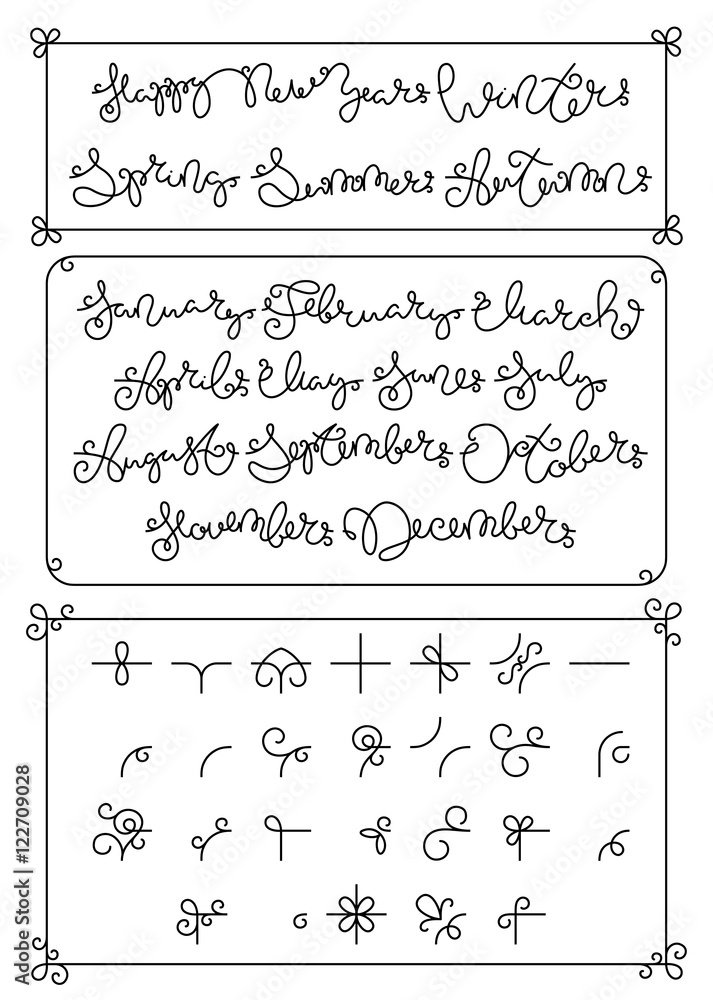 Happy New Years Winters
Springs Summers Autumns
January February March
Aprils May Junes July
August Septembers Octobers
Novembers Decembers
Adobe Stock | #122709028